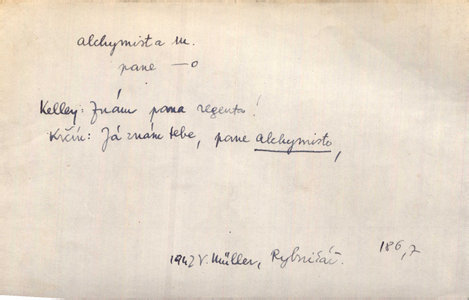 alchymista m.
pane —o
Kelley: Znám pana regenta!
Krčín: Já znám tebe, pane alchymisto,
1942 V. Müller, Rybnikář. 186,7